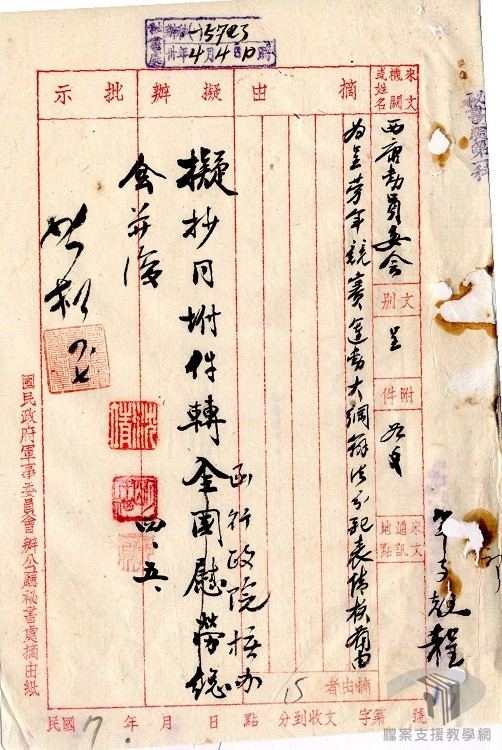 秘書處
辦(一)15743
卅年4月4日10時
來文機關或姓名
摘由
擬辦
批示
西康動員委會
文別
呈
附件
如文
來文通訊地點
為呈勞軍競賽運動大綱辦法分配表請核備由
函行政院核办
擬抄同附件轉全國慰勞總
會并復
四、五、
如擬
國民政府軍事委員會辦公廳秘書處摘由紙
摘由者
民國 年 月 日 點 分到收文 字第 號
檔案支援教學網